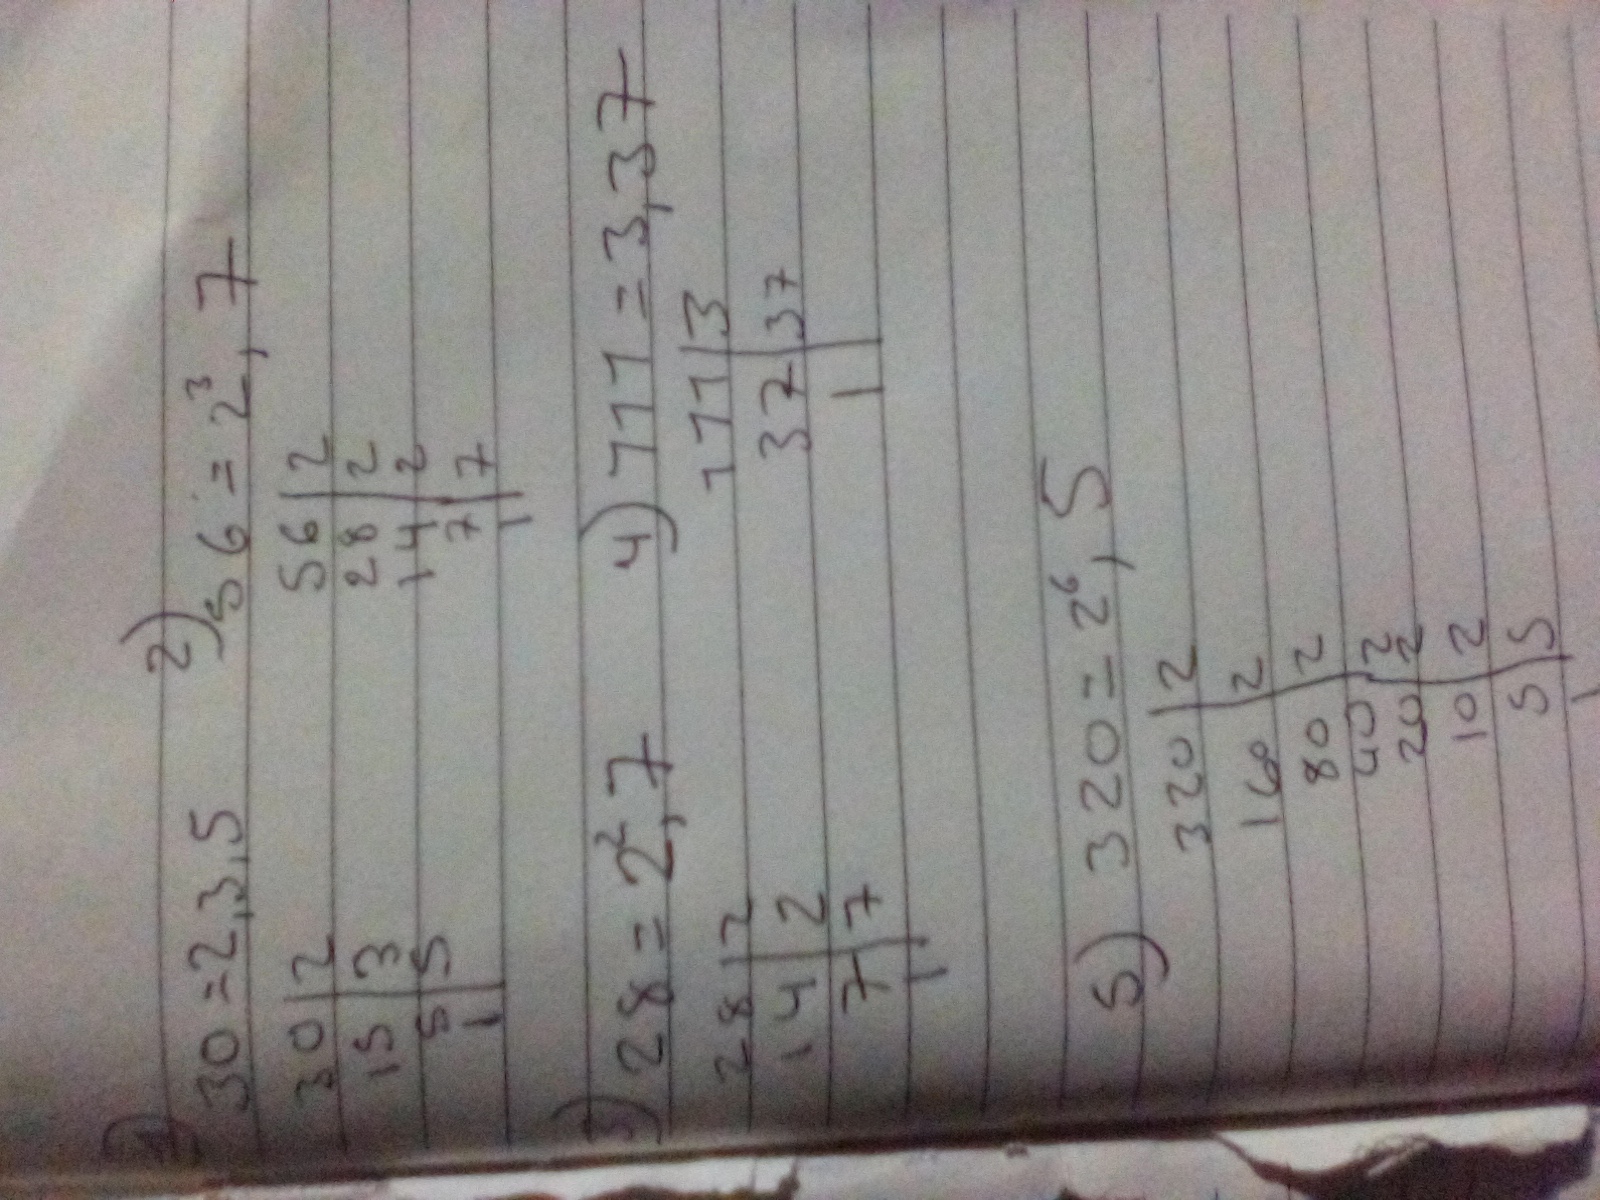 1) 30 = 2,3,5
30 | 2
15 | 3
5 | 5
1
2) 56 = 2³, 7
56 | 2
28 | 2
14 | 2
7 | 7
1
3) 28 = 2², 7
28 | 2
14 | 2
7 | 7
1
4) 111 = 3,37
111 | 3
37 | 37
1
5) 320 = 2⁶, 5
320 | 2
160 | 2
80 | 2
40 | 2
20 | 2
10 | 2
5 | 5
1